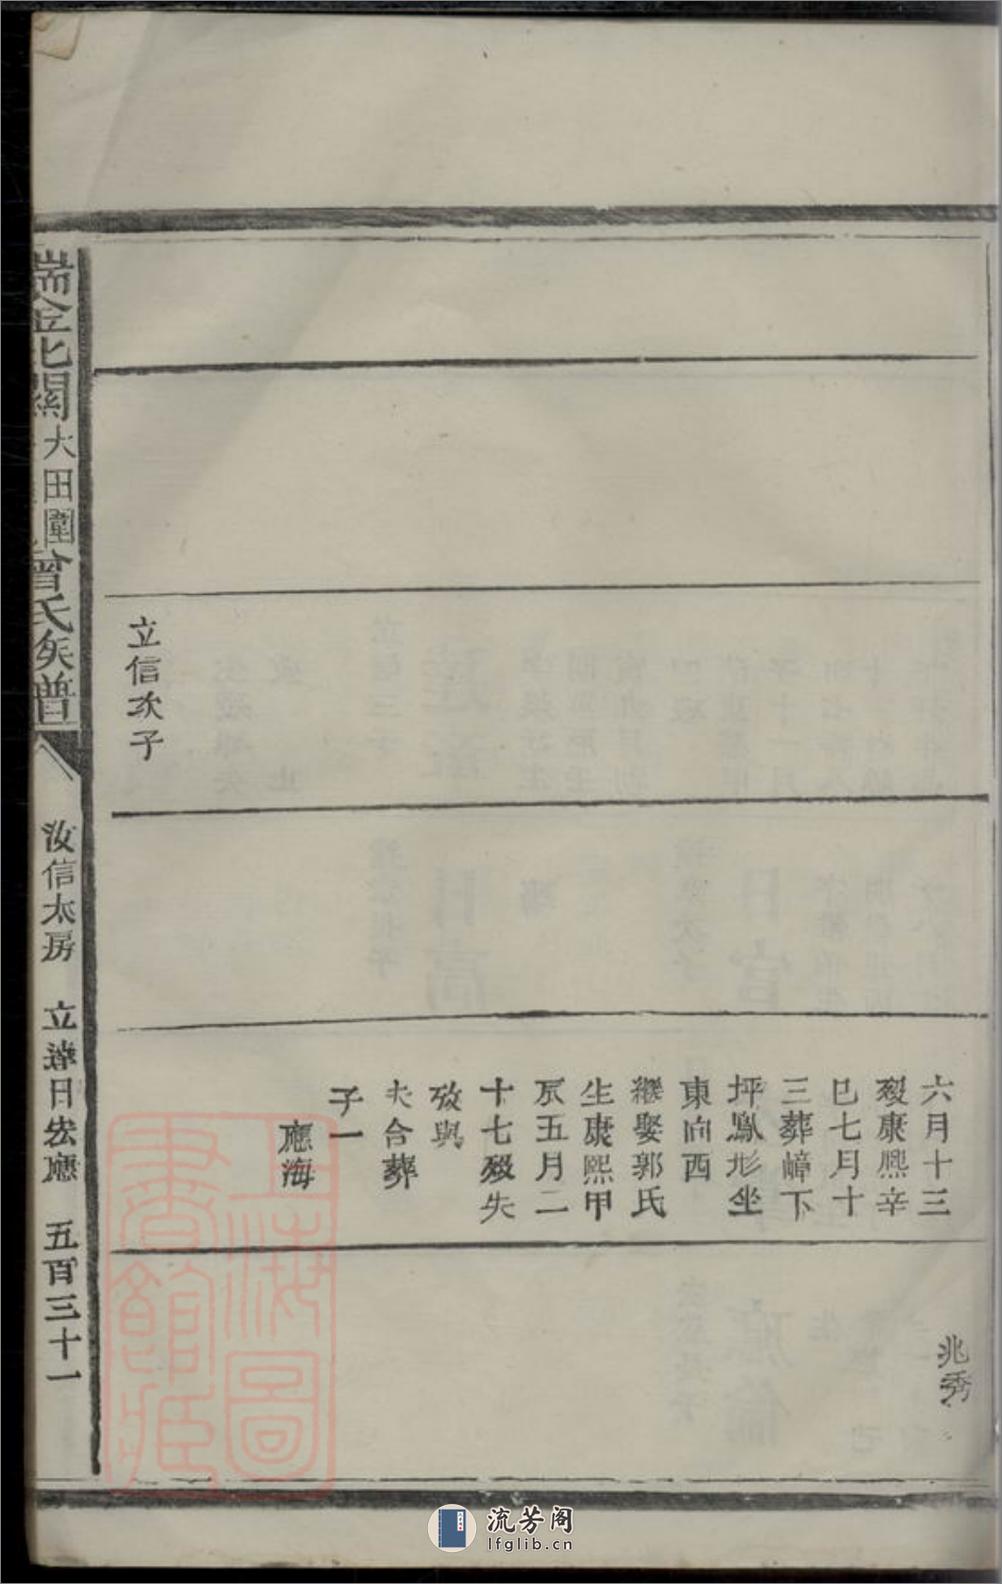 立信次子
六月十三
歿康熙辛
巳七月十
三葬嶂下
坪鳳形坐
東向西
繼娶郭氏
生康熙甲
辰五月二
十七歿失
攷與
夫合葬
子一
應海
兆秀
瑞金北關大田圍曾氏族譜
汝信太房 立達日宏應 五百三十一
上海圖書館藏
流芳阁
lfglib.cn